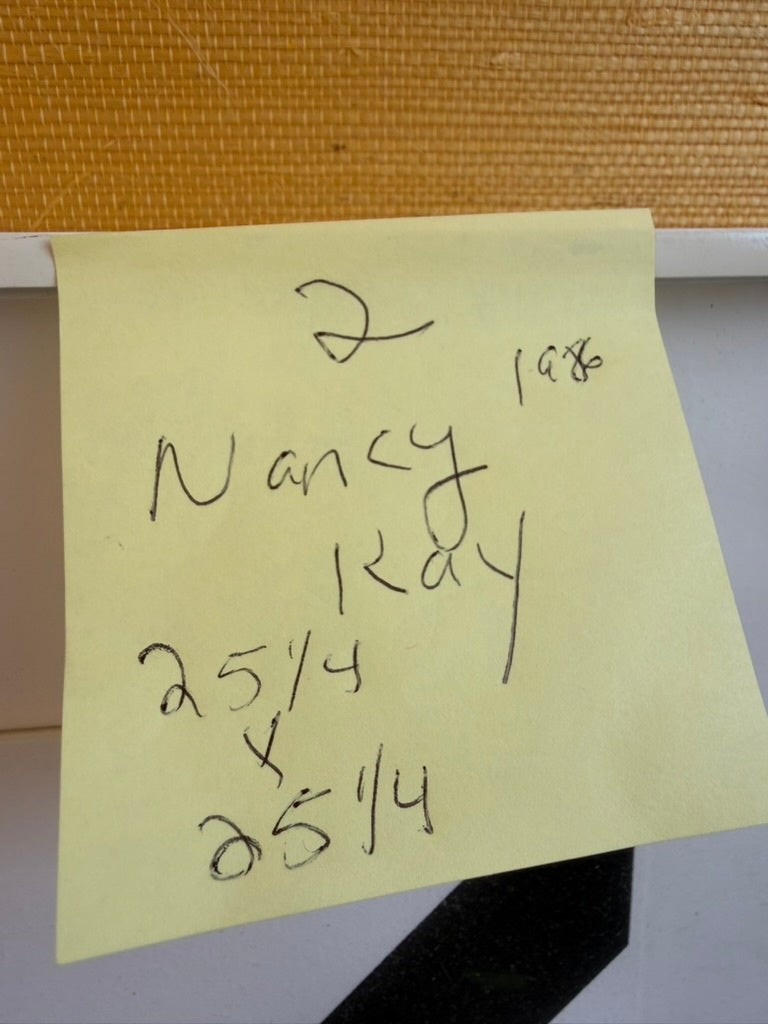 2
1986
Nancy
Kay
25 1/4
X
25 1/4